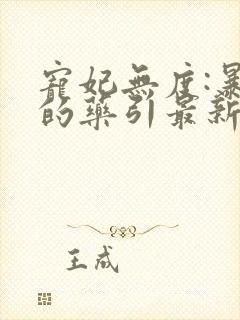 寵妃無度:暴
的藥引最新
王成